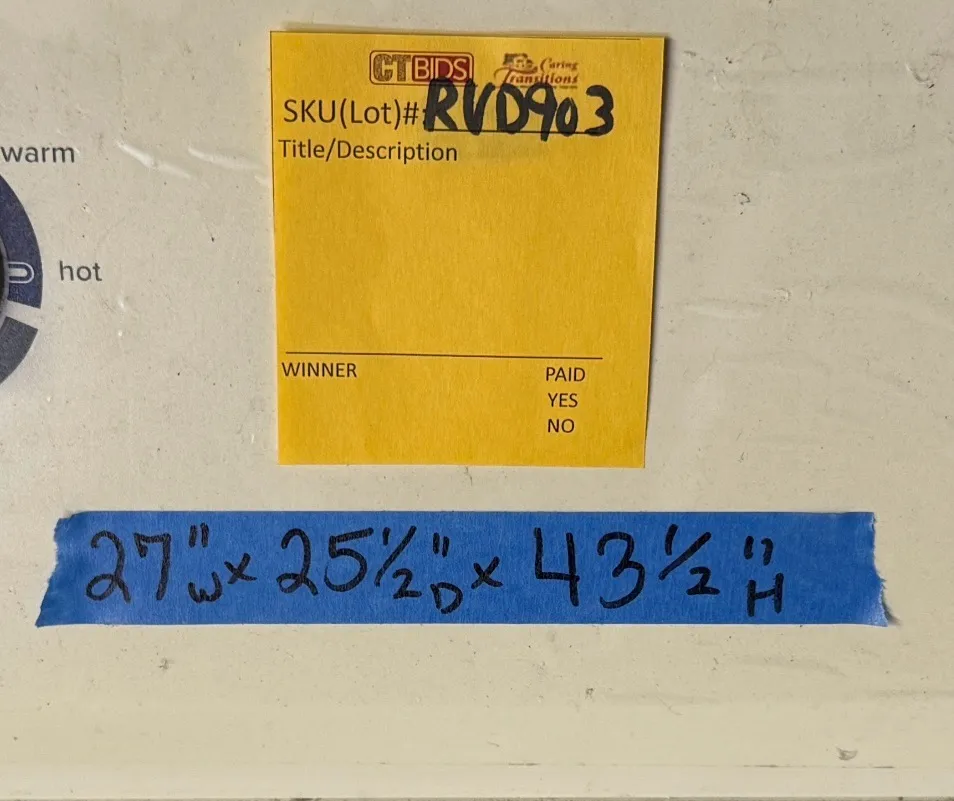 warm
hot
CTBIDS
Caring
Transitions
SKU(Lot)#: RVD903
Title/Description
WINNER
PAID
YES
NO
27"W x 25 1/2"D x 43 1/2"H